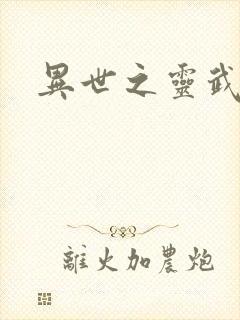 異世之靈武
離火加農炮